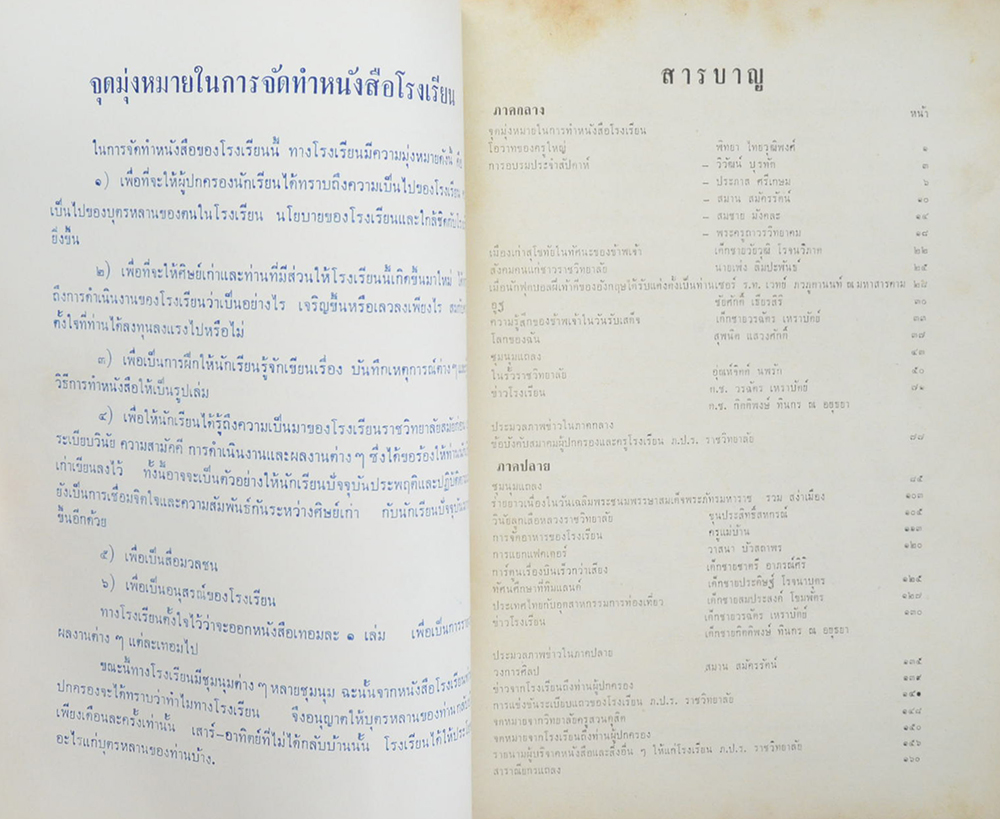 จุดมุ่งหมายในการจัดทำหนังสือโรงเรียน
ในการจัดทำหนังสือของโรงเรียนนี้ ทางโรงเรียนมีความมุ่งหมายดังนี้
๑) เพื่อที่จะให้ผู้ปกครองนักเรียนได้ทราบถึงความเป็นไปของโรงเรียน
เป็นไปของบุตรหลานของตนในโรงเรียน นโยบายของโรงเรียนและใกล้ชิดกับ
ยิ่งขึ้น
๒) เพื่อที่จะให้ศิษย์เก่าและท่านที่มีส่วนให้โรงเรียนนี้เกิดขึ้นมาใหม่
ถึงการดำเนินงานของโรงเรียนว่าเป็นอย่างไร เจริญขึ้นหรือเลวลงเพียงไร
ตั้งใจที่ท่านได้ลงทุนลงแรงไปหรือไม่
๓) เพื่อเป็นการฝึกให้นักเรียนรู้จักเขียนเรื่อง บันทึกเหตุการณ์ต่างๆ
วิธีการทำหนังสือให้เป็นรูปเล่ม
๔) เพื่อให้นักเรียนได้รู้ถึงความเป็นมาของโรงเรียนราชวิทยาลัยสมัยก่อน
ระเบียบวินัย ความสามัคคี การดำเนินงานและผลงานต่าง ๆ ซึ่งได้ขอร้องให้ท่าน
เก่าเขียนลงไว้ ทั้งนี้อาจจะเป็นตัวอย่างให้นักเรียนปัจจุบันประพฤติและปฏิบัติ
ยังเป็นการเชื่อมจิตใจและความสัมพันธ์กันระหว่างศิษย์เก่า กับนักเรียนปัจจุบัน
ขึ้นอีกด้วย
๕) เพื่อเป็นสื่อมวลชน
๖) เพื่อเป็นอนุสรณ์ของโรงเรียน
ทางโรงเรียนตั้งใจไว้ว่าจะออกหนังสือเทอมละ ๑ เล่ม เพื่อเป็นการ
ผลงานต่าง ๆ แต่ละเทอมไป
ขณะนี้ทางโรงเรียนมีชุมนุมต่าง ๆ หลายชุมนุม ฉะนั้นจากหนังสือโรงเรียน
ปกครองจะได้ทราบว่าทำไมทางโรงเรียน จึงอนุญาตให้บุตรหลานของท่าน
เพียงเดือนละครั้งเท่านั้น เสาร์-อาทิตย์ที่ไม่ได้กลับบ้านนั้น โรงเรียนได้ให้
อะไรแก่บุตรหลานของท่านบ้าง.
สารบาญ
ภาคกลาง หน้า
จุดมุ่งหมายในการทำหนังสือโรงเรียน
โอวาทของครูใหญ่ พิทยา ไทยวุฒิพงศ์ ๑
การอบรมประจำสัปดาห์ – วิวัฒน์ บุรทัก ๓
– ประภาส ศรีเกษม ๖
– สมาน สมัครรัตน์ ๑๐
– สมชาย มังคละ ๑๔
– พระครูถาวรวิทยาคม ๑๘
เมืองเก่าสุโขทัยในทัศนะของข้าพเจ้า เด็กชายวัยวุฒิ โรจนวิภาค ๒๒
สังคมคนแก่ชาวราชวิทยาลัย นายเพ่ง ลิมปะพันธ์ ๒๕
เมื่อนักฟุตบอลฝีเท้าดีของอังกฤษได้รับแต่งตั้งเป็นท่านเซอร์ ร.ท. เวทย์ ภวภูตานนท์ ณ มหาสารคาม ๒๗
ยูฐ ชัยศักดิ์ เธียรศิริ ๓๐
ความรู้สึกของข้าพเจ้าในวันรับเสด็จ เด็กชายวรฉัตร เหราบัตย์ ๓๓
โลกของฉัน สุพนิต แสวงศักดิ์ ๓๗
ชุมนุมแถลง ๔๓
ในรั้วราชวิทยาลัย อุ่นจิตต์ นพรัก ๕๐
ข่าวโรงเรียน ด.ช. วรฉัตร เหราบัตย์ ๗๑
ด.ช. กิตติพงษ์ ทินกร ณ อยุธยา
ประมวลภาพข่าวในภาคกลาง
ข้อบังคับสมาคมผู้ปกครองและครูโรงเรียน ภ.ป.ร. ราชวิทยาลัย ๘๘
ภาคปลาย
ชุมนุมแถลง ๙๕
รายยาวเนื่องในวันเฉลิมพระชนมพรรษาสมเด็จพระภัทรมหาราช รวม สง่าเมือง ๑๐๓
วินัยลูกเสือหลวงราชวิทยาลัย ขุนประสิทธิ์สหกรณ์ ๑๐๕
การจัดอาหารของโรงเรียน ครูแม่บ้าน ๑๑๓
การแยกแฟคเตอร์ วาสนา บัวสถาพร ๑๒๐
การ์ตูนเรื่องบินเร็วกว่าเสียง เด็กชายชาตรี อาภรณ์ศิริ
ทัศนศึกษาที่ทิมแลนด์ เด็กชายประดิษฐ์ โรจนาบุตร ๑๒๕
ประเทศไทยกับอุตสาหกรรมการท่องเที่ยว เด็กชายสมประสงค์ โขมพัตร ๑๒๗
ข่าวโรงเรียน เด็กชายวรฉัตร เหราบัตย์ ๑๓๐
เด็กชายกิตติพงษ์ ทินกร ณ อยุธยา
ประมวลภาพข่าวในภาคปลาย
วงการศิลป สมาน สมัครรัตน์ ๑๓๕
ข่าวจากโรงเรียนถึงท่านผู้ปกครอง ๑๓๙
การแข่งขันระเบียบแถวของโรงเรียน ภ.ป.ร. ราชวิทยาลัย ๑๔๑
จดหมายจากวิทยาลัยครูสวนดุสิต ๑๔๘
จดหมายจากโรงเรียนถึงท่านผู้ปกครอง ๑๕๐
รายนามผู้บริจาคหนังสือและสิ่งอื่น ๆ ให้แก่โรงเรียน ภ.ป.ร. ราชวิทยาลัย ๑๕๖
สาราณียกรแถลง ๑๖๐